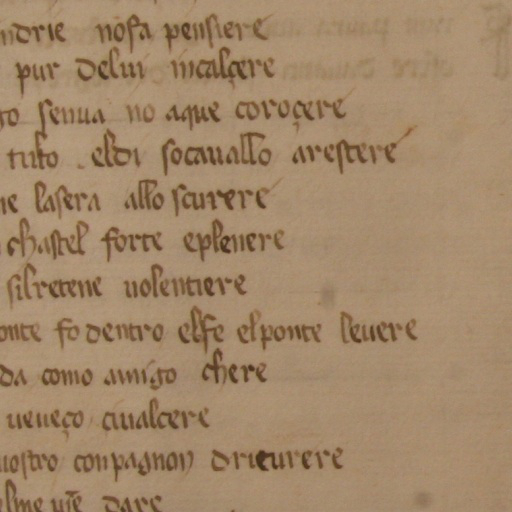 ndrie nosa pensiere
pur delui incalçere
go senua no aque coroçere
tuto . eldi socauallo arestere
ne lasera allo scurere
chastel forte eplenere
silretene uolentiere
onte fo dentro elfe elponte leuere
da como amigo chere
ueueço çiualcere
uostro conpagnon drieurere
elme dare